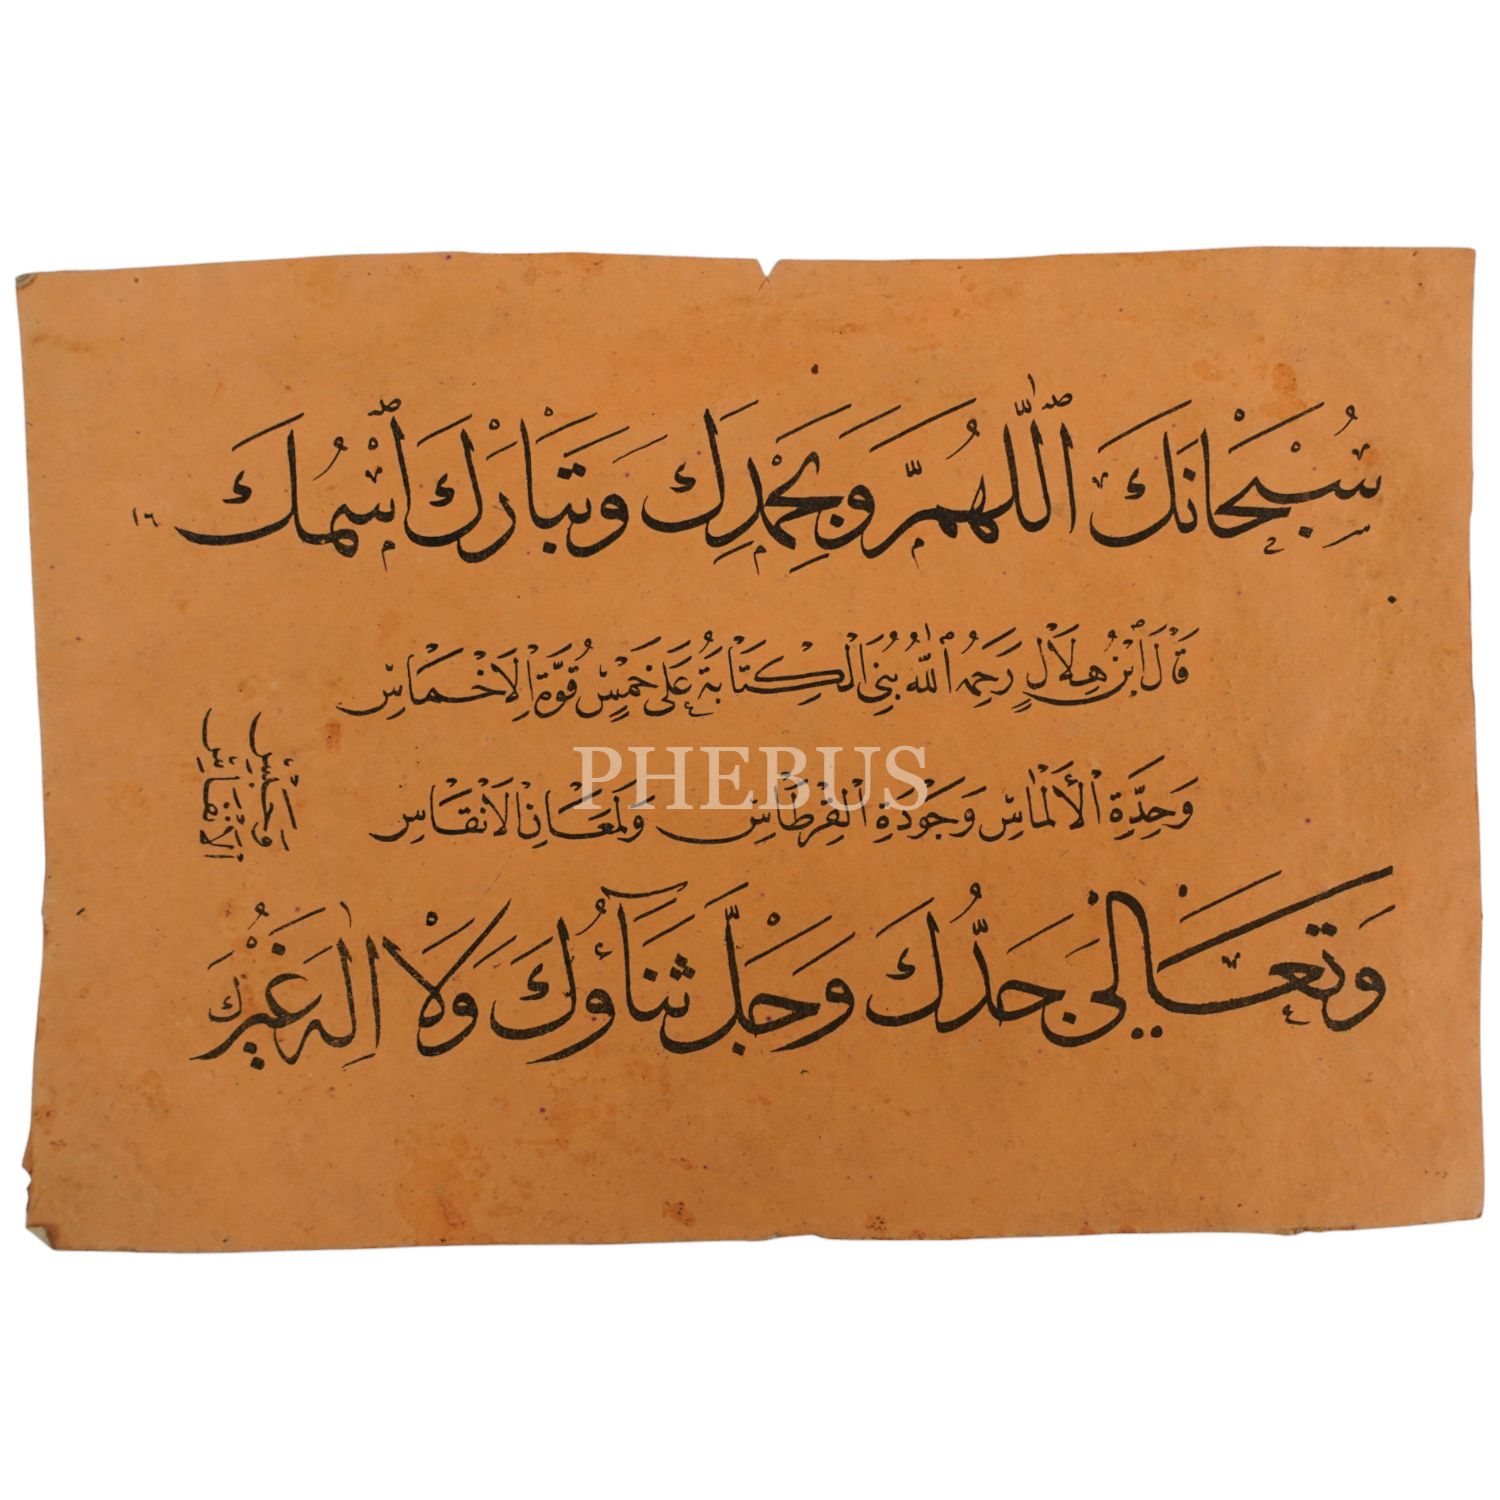 سُبْحَانَكَ ٱللّٰهُمَّ وَبِحَمْدِكَ وَتَبَارَكَ ٱسْمُكَ
١٦
قَالَ ٱبْنُ هِلَالٍ رَحِمَهُ ٱللّٰهُ بُنِيَ الْكِتَابَةُ عَلَى خَمْسٍ قُوَّةِ الْاَخْمَاسِ
وَحِدَّةِ الْأَلْمَاسِ وَجَوْدَةِ الْقِرْطَاسِ وَلَمَعَانِ الْاَنْقَاسِ
وَحَبْسِ
الْاَنْفَاسِ
PHEBUS
وَتَعَالٰى جَدُّكَ وَجَلَّ ثَنَآؤُكَ وَلَا اِلٰهَ غَيْرُكَ